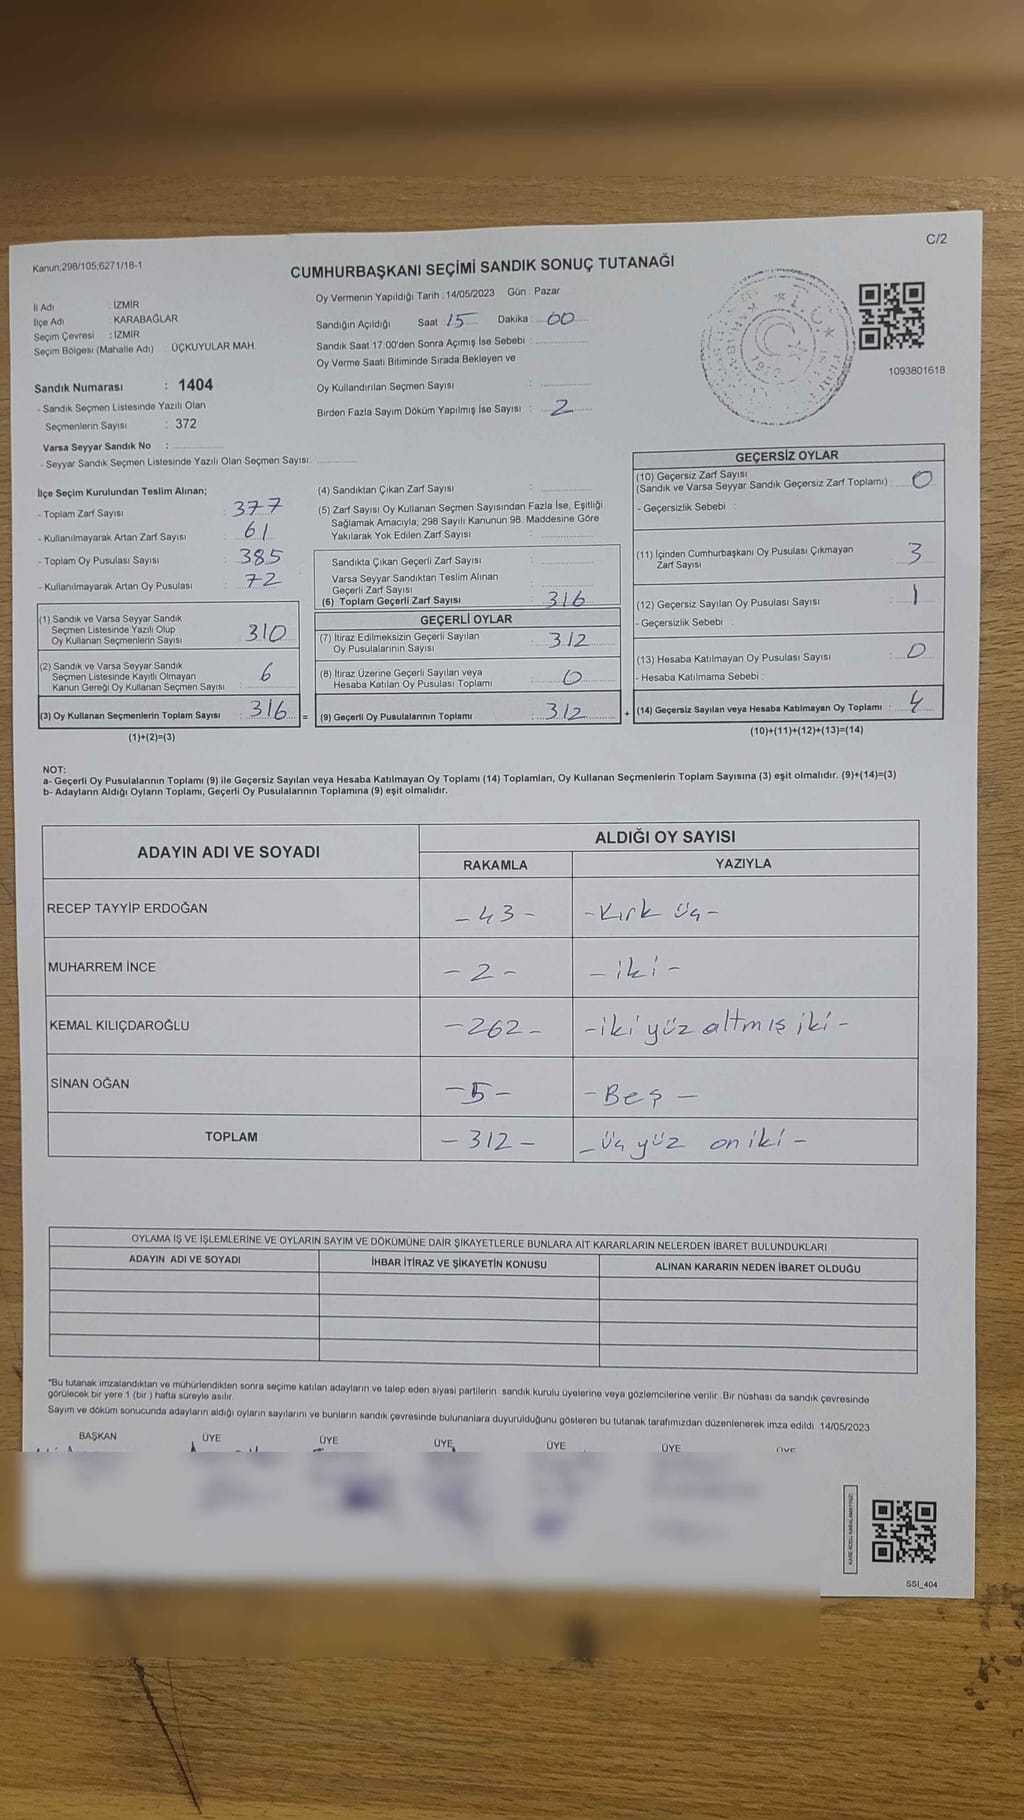 C/2
Kanun,298/105,6271/18-1
CUMHURBAŞKANI SEÇİMİ SANDIK SONUÇ TUTANAĞI
İl Adı : İZMİR
İlçe Adı : KARABAĞLAR
Seçim Çevresi : İZMİR
Seçim Bölgesi (Mahalle Adı) : ÜÇKUYULAR MAH.
Sandık Numarası : 1404
- Sandık Seçmen Listesinde Yazılı Olan
Seçmenlerin Sayısı : 372
Varsa Seyyar Sandık No :
- Seyyar Sandık Seçmen Listesinde Yazılı Olan Seçmen Sayısı:
Oy Vermenin Yapıldığı Tarih : 14/05/2023 Gün : Pazar
Sandığın Açıldığı Saat : 15 Dakika : 00
Sandık Saat 17:00'den Sonra Açımış İse Sebebi :
Oy Verme Saati Bitiminde Sırada Bekleyen ve
Oy Kullandırılan Seçmen Sayısı :
Birden Fazla Sayım Döküm Yapılmış İse Sayısı : 2
1093801618
İlçe Seçim Kurulundan Teslim Alınan;
- Toplam Zarf Sayısı : 377
- Kullanılmayarak Artan Zarf Sayısı : 61
- Toplam Oy Pusulası Sayısı : 385
- Kullanılmayarak Artan Oy Pusulası : 72
(1) Sandık ve Varsa Seyyar Sandık
Seçmen Listesinde Yazılı Olup
Oy Kullanan Seçmenlerin Sayısı : 310
(2) Sandık ve Varsa Seyyar Sandık
Seçmen Listesinde Kayıtlı Olmayan
Kanun Gereği Oy Kullanan Seçmen Sayısı : 6
(3) Oy Kullanan Seçmenlerin Toplam Sayısı : 316 =
(1)+(2)=(3)
(4) Sandıktan Çıkan Zarf Sayısı :
(5) Zarf Sayısı Oy Kullanan Seçmen Sayısından Fazla İse, Eşitliği
Sağlamak Amacıyla, 298 Sayılı Kanunun 98. Maddesine Göre
Yakılarak Yok Edilen Zarf Sayısı :
Sandıkta Çıkan Geçerli Zarf Sayısı :
Varsa Seyyar Sandıktan Teslim Alınan
Geçerli Zarf Sayısı :
(6) Toplam Geçerli Zarf Sayısı : 316
GEÇERLİ OYLAR
(7) İtiraz Edilmeksizin Geçerli Sayılan
Oy Pusulalarının Sayısı : 312
(8) İtiraz Üzerine Geçerli Sayılan veya
Hesaba Katılan Oy Pusulası Toplamı : 0
(9) Geçerli Oy Pusulalarının Toplamı : 312 +
GEÇERSİZ OYLAR
(10) Geçersiz Zarf Sayısı
(Sandık ve Varsa Seyyar Sandık Geçersiz Zarf Toplamı) : 0
- Geçersizlik Sebebi :
(11) İçinden Cumhurbaşkanı Oy Pusulası Çıkmayan
Zarf Sayısı : 3
(12) Geçersiz Sayılan Oy Pusulası Sayısı : 1
- Geçersizlik Sebebi :
(13) Hesaba Katılmayan Oy Pusulası Sayısı : 0
- Hesaba Katılmama Sebebi :
(14) Geçersiz Sayılan veya Hesaba Katılmayan Oy Toplamı : 4
(10)+(11)+(12)+(13)=(14)
NOT:
a- Geçerli Oy Pusulalarının Toplamı (9) ile Geçersiz Sayılan veya Hesaba Katılmayan Oy Toplamı (14) Toplamları, Oy Kullanan Seçmenlerin Toplam Sayısına (3) eşit olmalıdır. (9)+(14)=(3)
b- Adayların Aldığı Oyların Toplamı, Geçerli Oy Pusulalarının Toplamına (9) eşit olmalıdır.
ADAYIN ADI VE SOYADI ALDIĞI OY SAYISI
RAKAMLA YAZIYLA
RECEP TAYYİP ERDOĞAN - 43 - - Kırk üç -
MUHARREM İNCE - 2 - - iki -
KEMAL KILIÇDAROĞLU - 262 - - iki yüz altmış iki -
SİNAN OĞAN - 5 - - Beş -
TOPLAM - 312 - - Üç yüz on iki -
OYLAMA İŞ VE İŞLEMLERİNE VE OYLARIN SAYIM VE DÖKÜMÜNE DAİR ŞİKAYETLERLE BUNLARA AİT KARARLARIN NELERDEN İBARET BULUNDUKLARI
ADAYIN ADI VE SOYADI İHBAR İTİRAZ VE ŞİKAYETİN KONUSU ALINAN KARARIN NEDEN İBARET OLDUĞU
*Bu tutanak imzalandıktan ve mühürlendikten sonra seçime katılan adayların ve talep eden siyasi partilerin sandık kurulu üyelerine veya gözlemcilerine verilir. Bir nüshası da sandık çevresinde
görülecek bir yere 1 (bir ) hafta süreyle asılır.
Sayım ve döküm sonucunda adayların aldığı oyların sayılarını ve bunların sandık çevresinde bulunanlara duyurulduğunu gösteren bu tutanak tarafımızdan düzenlenerek imza edildi. 14/05/2023
BAŞKAN ÜYE ÜYE ÜYE ÜYE ÜYE ÜYE
SSI_404